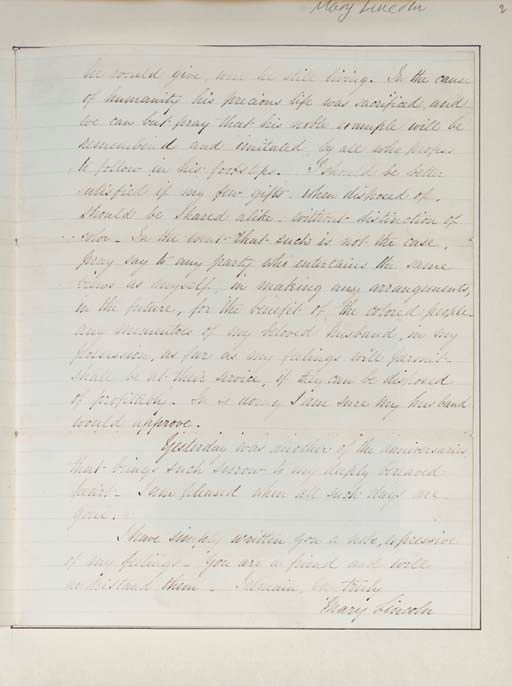 Mary Lincoln
2
he would give, were he still living. In the cause
of humanity his precious life was sacrificed, and
we can but pray that his noble example will be
remembered and imitated by all who propose
to follow in his footsteps. I should be better
satisfied if my few gifts when disposed of,
should be shared alike without distinction of
color. In the event that such is not the case,
pray say to any party who entertains the same
views as myself, in making any arrangements,
in the future, for the benefit of the colored people
any mementoes of my beloved husband, in my
possession, as far as my feelings will permit
shall be at their service, if they can be disposed
of profitably. In so doing I am sure my husband
would approve.
Yesterday was another of the anniversaries
that brings such sorrow to my deeply bereaved
heart. I am pleased when all such days are
gone.
I have simply written you a note, expressive
of my feelings. You are a friend and will
understand them. I remain, truly
Mary Lincoln